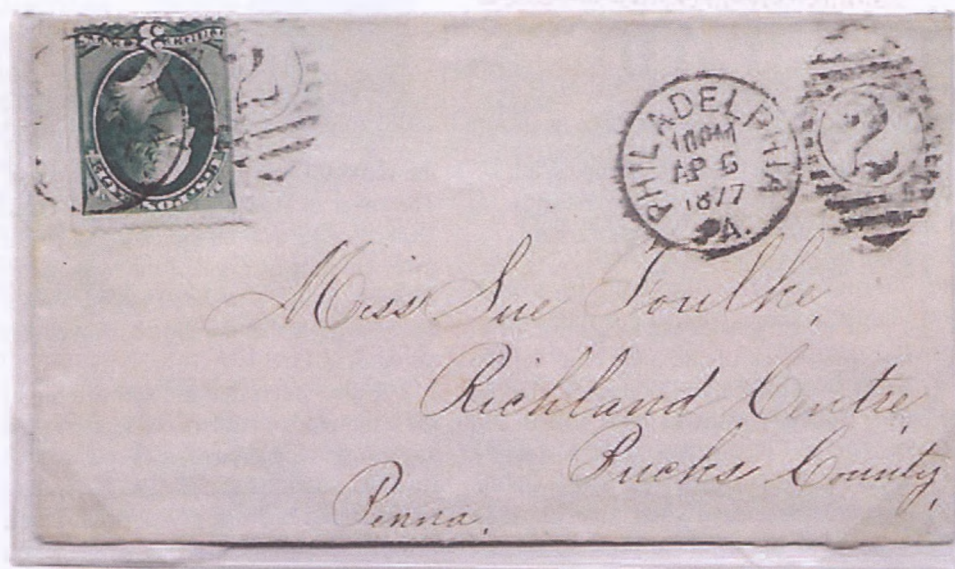 3
2
PHILADELPHIA
10PM
AP 5
1877
PA.
2
Miss Sue Foulke,
Richland Centre,
Bucks County,
Penna.